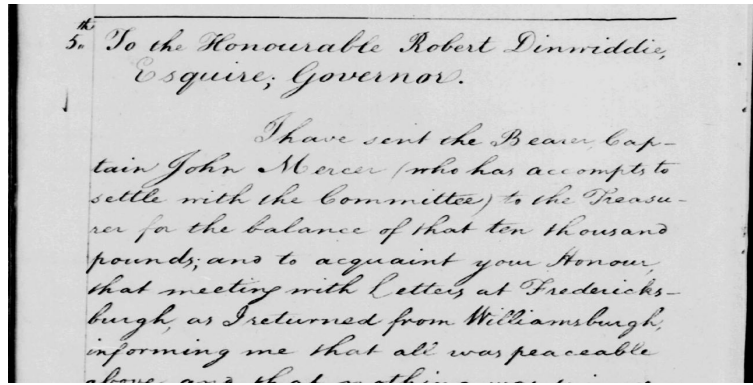 5.th To the Honourable Robert Dinwiddie,
Esquire; Governor.
I have sent the Bearer, Cap-
tain John Mercer (who has accompts to
settle with the Committee) to the Treasu-
rer for the balance of that ten thousand
pounds; and to acquaint your Honour,
that meeting with Letters at Fredericks-
burgh, as I returned from Williamsburgh,
informing me that all was peaceable
above, and that nothing was